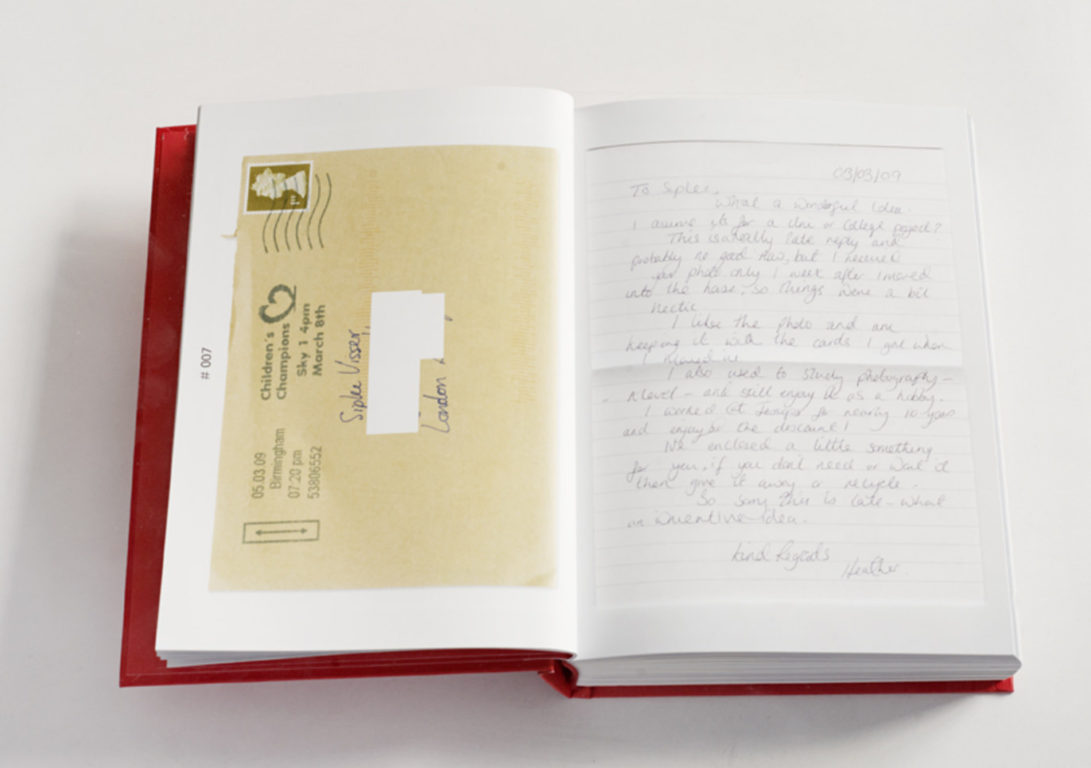 # 007
1st
Children's
Champions
Sky 1 4pm
March 8th
05.03.09
Birmingham
07:20 pm
53806552
Sipke Visser
London
03/03/09
To Sipke,
What a wonderful idea.
I assume its for a Uni or College project?
This is a really late reply and
probably no good now, but I received
your photo only 1 week after I moved
into the house, so things were a bit
hectic.
I like the photo and am
keeping it with the cards I got when
I moved in.
I also used to study photography -
A level - and still enjoy it as a hobby.
I worked at for nearly 10 years
and enjoy the discount!
I've enclosed a little something
for you, if you don't need or want it
then give it away or recycle.
So sorry this is late - what
an inventive idea.
Kind Regards
Heather.